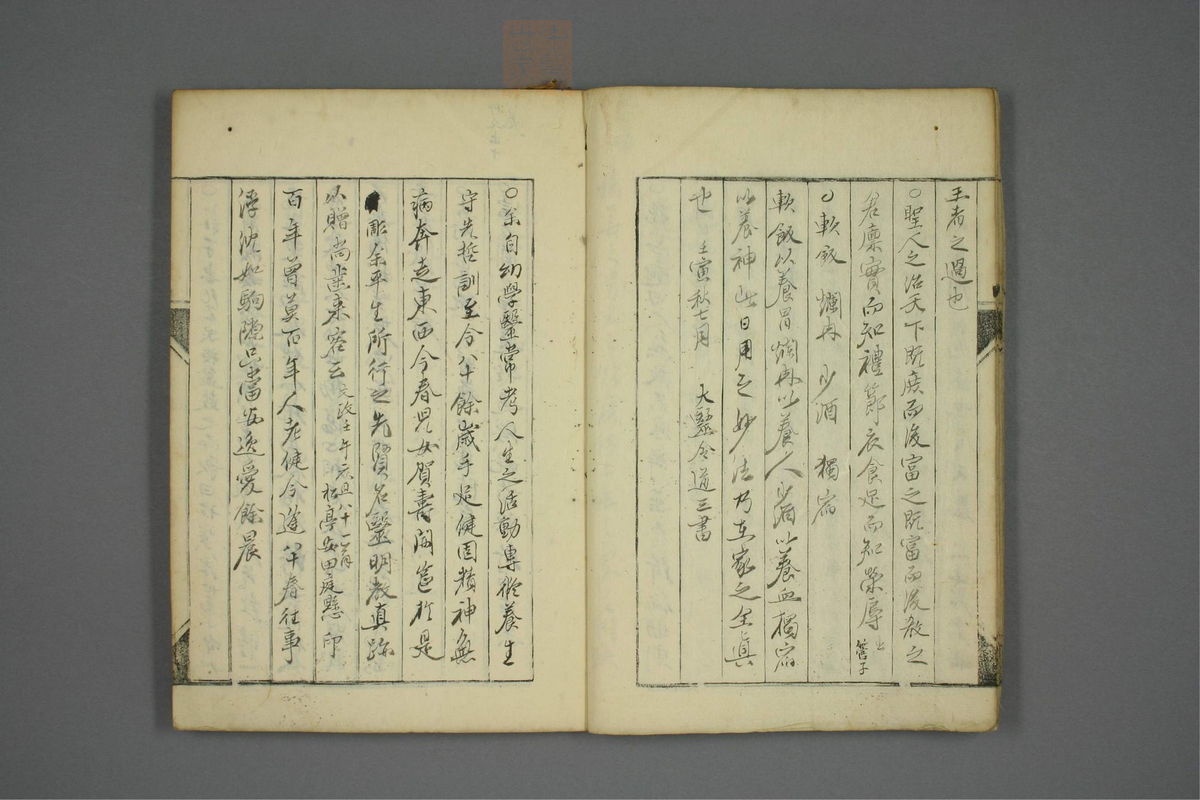 王者之過也
○聖人之治天下既庶而後富之既富而後教之
君廩實而知禮節衣食足而知榮辱上管子
○軟飯 爛肉 少酒 獨宿
軟飯以養胃爛肉以養人少酒以養血獨宿
以養神此日用之妙法乃在家之全真
也 壬寅秋七月 大醫令道三書
○余自幼學醫常考人生之活動專從養生
守先哲訓至今八十餘歲手足健固精神無
病奔走東西今春兒女賀壽開筵於是
彫余平生所行之先賢名醫明教真跡
以贈尚業來客云文政壬午元旦八十一翁松亭安田庭懸印
百年曾莫百年人老健今逢八十春往事
浮沈如駒隙只當安逸愛餘晨